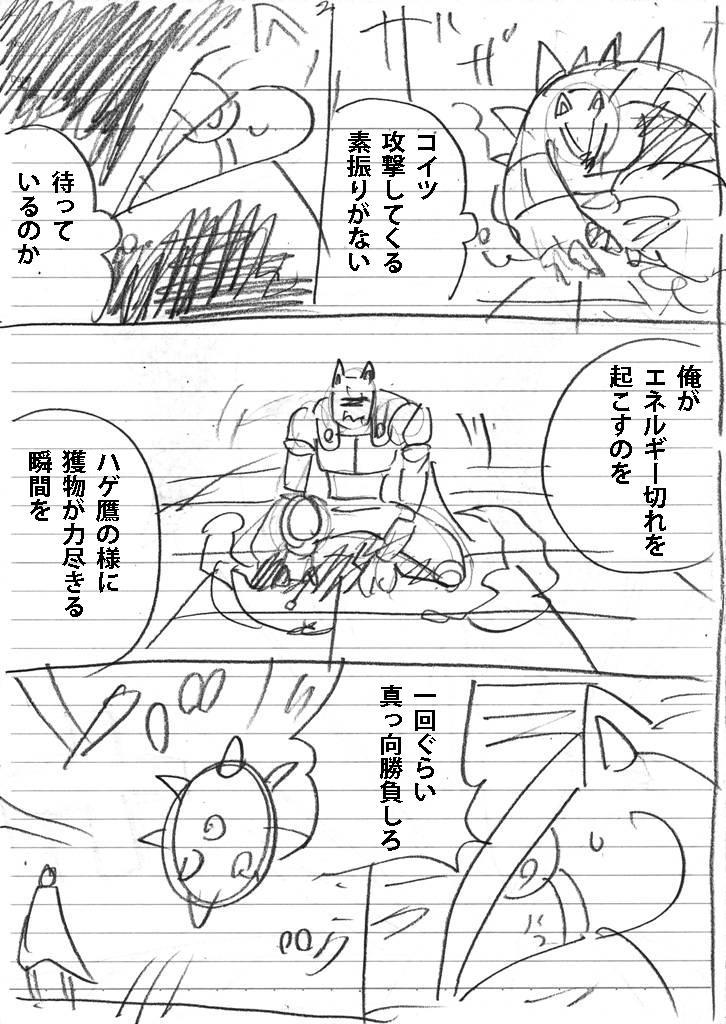 ザ
ザ
コイツ
攻撃してくる
素振りがない
待って
いるのか
俺が
エネルギー切れを
起こすのを
ハゲ鷹の様に
獲物が力尽きる
瞬間を
一回ぐらい
真っ向勝負しろ